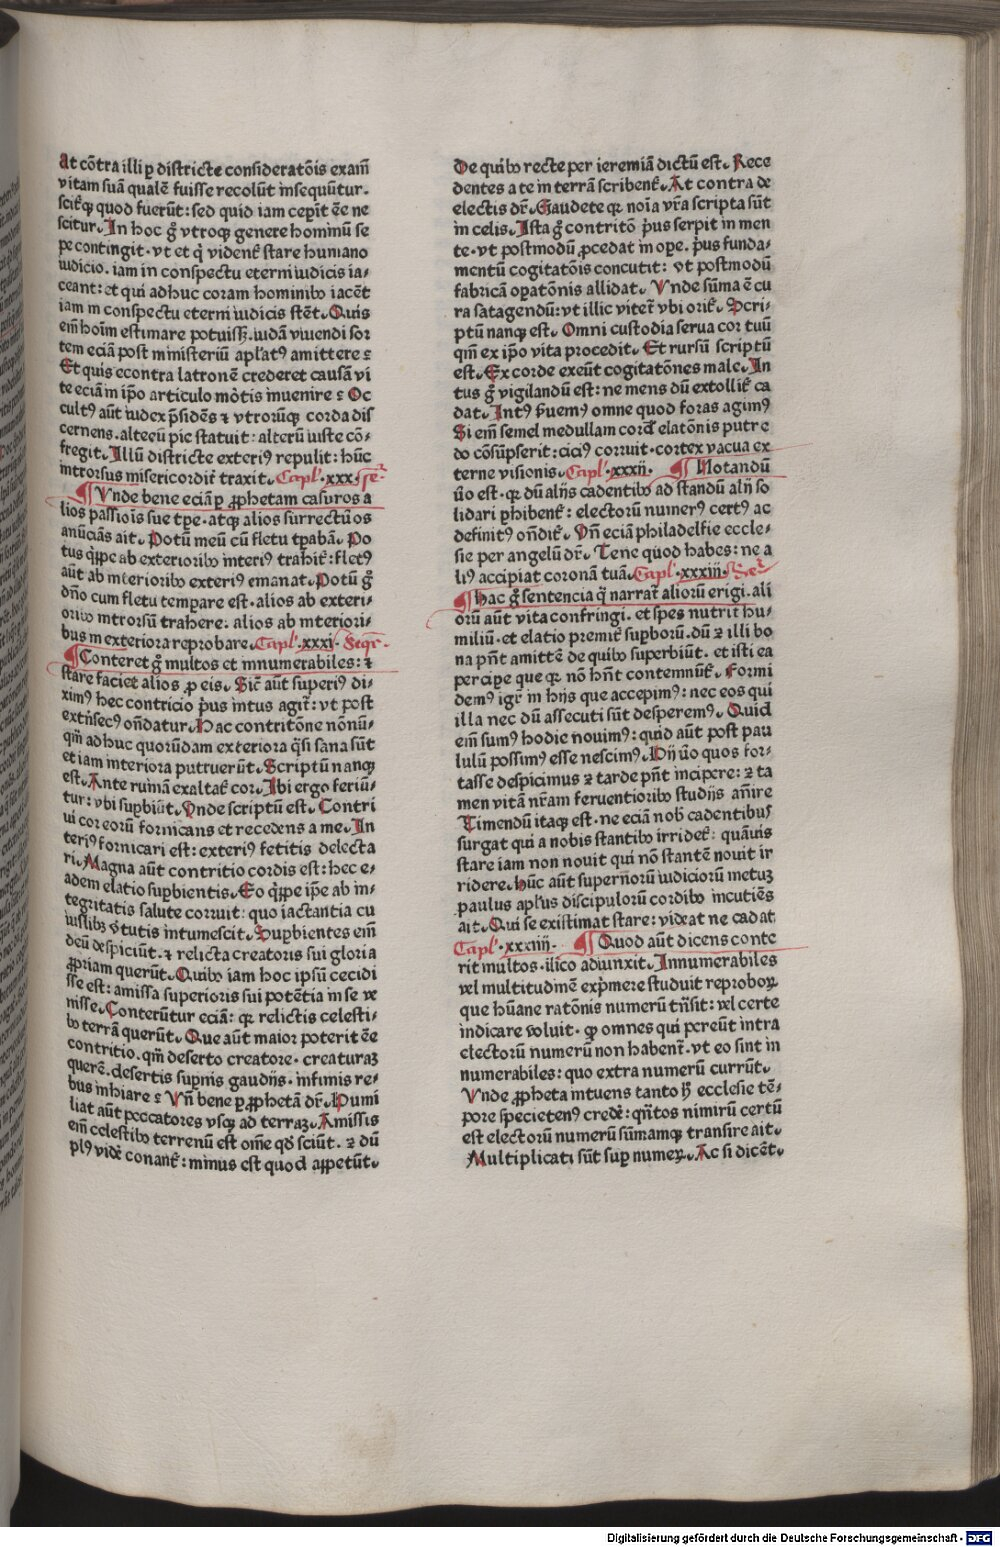 At cōtra illi ꝑ districte consideratōis examī
vitam suā qualē fuisse recolūt insequūtur.
scitꝗ quod fuerūt: sed quid iam ceꝑīt ēe ne
scitur. In hoc gͦ vtroqꝫ genere hominū se
pe contingit · vt et qͥ vident stare humano
iudicio. iam in conspectu eterni iudicis ia⸗
ceant: et qui adhuc coram hominibꝰ iacēt
iam in conspectu eterni iudicis stēt. Quis
em̄ hoīm estimare potuissꝫ. iudā viuendi sor
tem eciā post ministeriū apl'atꝰ amittere ?
Et quis econtra latronē crederet causā vi
te eciā in ip̄o articulo mōtis inuenire ? Oc
cultꝰ aūt iudex p̄sidēs ⁊ vtrorūqꝫ corda dis
cernens. alterū pie statuit: alterū iuste cō⸗
fregit. Illū districte exteriꝰ repulit: hūc
introrsus misericordit̄ traxit. Capl'. xxx.
¶ Vnde bene eciā ꝑ ꝓphetam casuros a
lios passiois sue tꝑe · atqꝫ alios surrectu os
anūciās ait. Potū meū cū fletu tꝑabā. Po
tus qͥppe ab exterioribꝰ interiꝰ trahit̄: fletꝰ
aūt ab interioribꝰ exteriꝰ emanat. Potū gͦ
dn̄o cum fletu temꝑare est · alios ab exteri⸗
oribꝰ introrsū trahere: alios ab interiori⸗
bus in exteriora reprobare. Capl'. xxxi. Seqr̄.
¶ Conteret gͦ multos et innumerabiles: ⁊
stare faciet alios ꝓ eis. Sic̄ aūt superiꝰ di⸗
ximꝰ hec contricio pͥus intus agit̄: vt post
extn̄secꝰ on̄datur. Hac contritōne nōnū⸗
qm̄ adhuc quorūdam exteriora qͣsi sana sūt
et iam interiora putruerūt. Scriptū nanqꝫ
est. Ante ruinā exaltat̄ cor. Ibi ergo feriū⸗
tur: vbi suꝑbiūt. Vnde scriptū est. Contri
ui cor eorū fornicans et recedens a me. In
teriꝰ fornicari est: exteriꝰ fetitis delecta
ri. Magna aūt contritio cordis est: hec e⸗
adem elatio suꝑbientis. Eo qͥppe ip̄e ab in⸗
tegritatis salute corruit: quo iactantia cu
iuslibꝫ v̄tutis intumescit. Suꝑbientes em̄
deū despiciūt. ⁊ relicta creatoris sui gloria
ꝓpriam querūt. Quibꝰ iam hoc ip̄sū cecidi
sse est: amissa superioris sui potētia in se ve
nisse. Conterūtur eciā: qꝛ relictis celesti⸗
bꝰ terrā querūt. Que aūt maior poterit ēe
contritio. qm̄ deserto creatore · creaturaꝫ
querē. desertis suꝑnis gaudijs · infimis re⸗
bus inhiare ? Vn̄ bene ꝑ ꝓphetā dr̄. Humi
liat aūt peccatores vsqꝫ ad terraꝫ. Amissis
em̄ celestibꝰ terrenū est om̄e qd̓ sciūt. ⁊ dū
plꝰ vidē conant̄: minus est quod appetūt.
De quibꝰ recte per ieremiā dictū est. Rece
dentes a te in terrā scribent̄. At contra de
electis dr̄. Gaudete qꝛ noīa vr̄a scripta sūt
in celis. Ista gͦ contritō pͥus serpit in men
te · vt postmodū ꝓcedat in oꝑe. pͥus funda⸗
mentū cogitatōis concutit: vt postmodū
fabricā oꝑatōnis allidat. Vnde sūma ē cu
ra satagendū: vt illic vitet̄ vbi orit̄. Scri⸗
ptū nanqꝫ est. Omni custodia serua cor tuū
qm̄ ex ip̄o vita procedit. Et rursū scriptū
est. Ex corde exeūt cogitatōnes male. In
tus gͦ vigilandū est: ne mens dū extollit̄ ca
dat. Intꝰ s̄uemꝰ omne quod foras agimꝰ
Si em̄ semel medullam cord̓ elatōnis putre
do cōsūpserit: ciciꝰ corruit · cortex vacua ex
terne visionis. Capl'. xxxij. ¶ Notandū
v̄o est · qꝛ dū alijs cadentibꝰ ad standū alij so
lidari ꝑhibent̄: electorū numerꝰ certꝰ ac
definitꝰ on̄dit̄. Vn̄ eciā philadelfie eccle⸗
sie per angelū dr̄. Tene quod habes: ne a
liꝰ accipiat coronā tuā. Capl'. xxxiij.
¶ Hac gͦ sentencia qͣ narrat̄ aliorū erigi. ali
orū aūt vita confringi. et spes nutrit̄ hu⸗
miliū · et elatio premit̄ suꝑborū. dū ⁊ illi bo
na pn̄t amittē de quibꝰ superbiūt. et isti ea
percipe que qꝛ nō hn̄t contemnūt̄. Formi
demꝰ igr̄ in hijs que accepimꝰ: nec eos qui
illa nec dū assecuti sūt desperemꝰ. Quid
em̄ sumꝰ hodie nouimꝰ: quid aūt post pau
lulū possimꝰ esse nescimꝰ. Hij v̄o quos for⸗
tasse despicimus ⁊ tarde pn̄t incipere: ⁊ ta
men vitā nr̄am feruentioribꝰ studijs an̄ire
Timendū itaqꝫ est · ne eciā nob̓ cadentibus
surgat qui a nobis stantibꝰ irridet̄: quāuis
stare iam non nouit qui nō stantē nouit ir
ridere. Hūc aūt supernorū iudiciorū metuꝫ
paulus apl'us discipulorū cordibꝰ incutiēs
ait. Qui se existimat stare: videat ne cadat
Capl'. xxxiiij. ¶ Quod aūt dicens conte
rit multos · ilico adiunxit. Innumerabiles
vel multitudinē exp̄mere studuit reproboꝝ
que hūane ratōnis numerū tn̄sit: vel certe
indicare voluit · qꝙ omnes qui pereūt intra
electorū numerū non habent̄. vt eo sint in
numerabiles: quo extra numerū currūt.
Vnde ꝓpheta intuens tanto hͦ ecclesie tē⸗
pore specietenꝰ creder̄: qn̄tos nimirū certū
est electorū numerū sūmamqꝫ transire ait.
Multiplicati sūt suꝑ numeꝝ. Ac si dicēt.
Digitalisierung gefördert durch die Deutsche Forschungsgemeinschaft - DFG